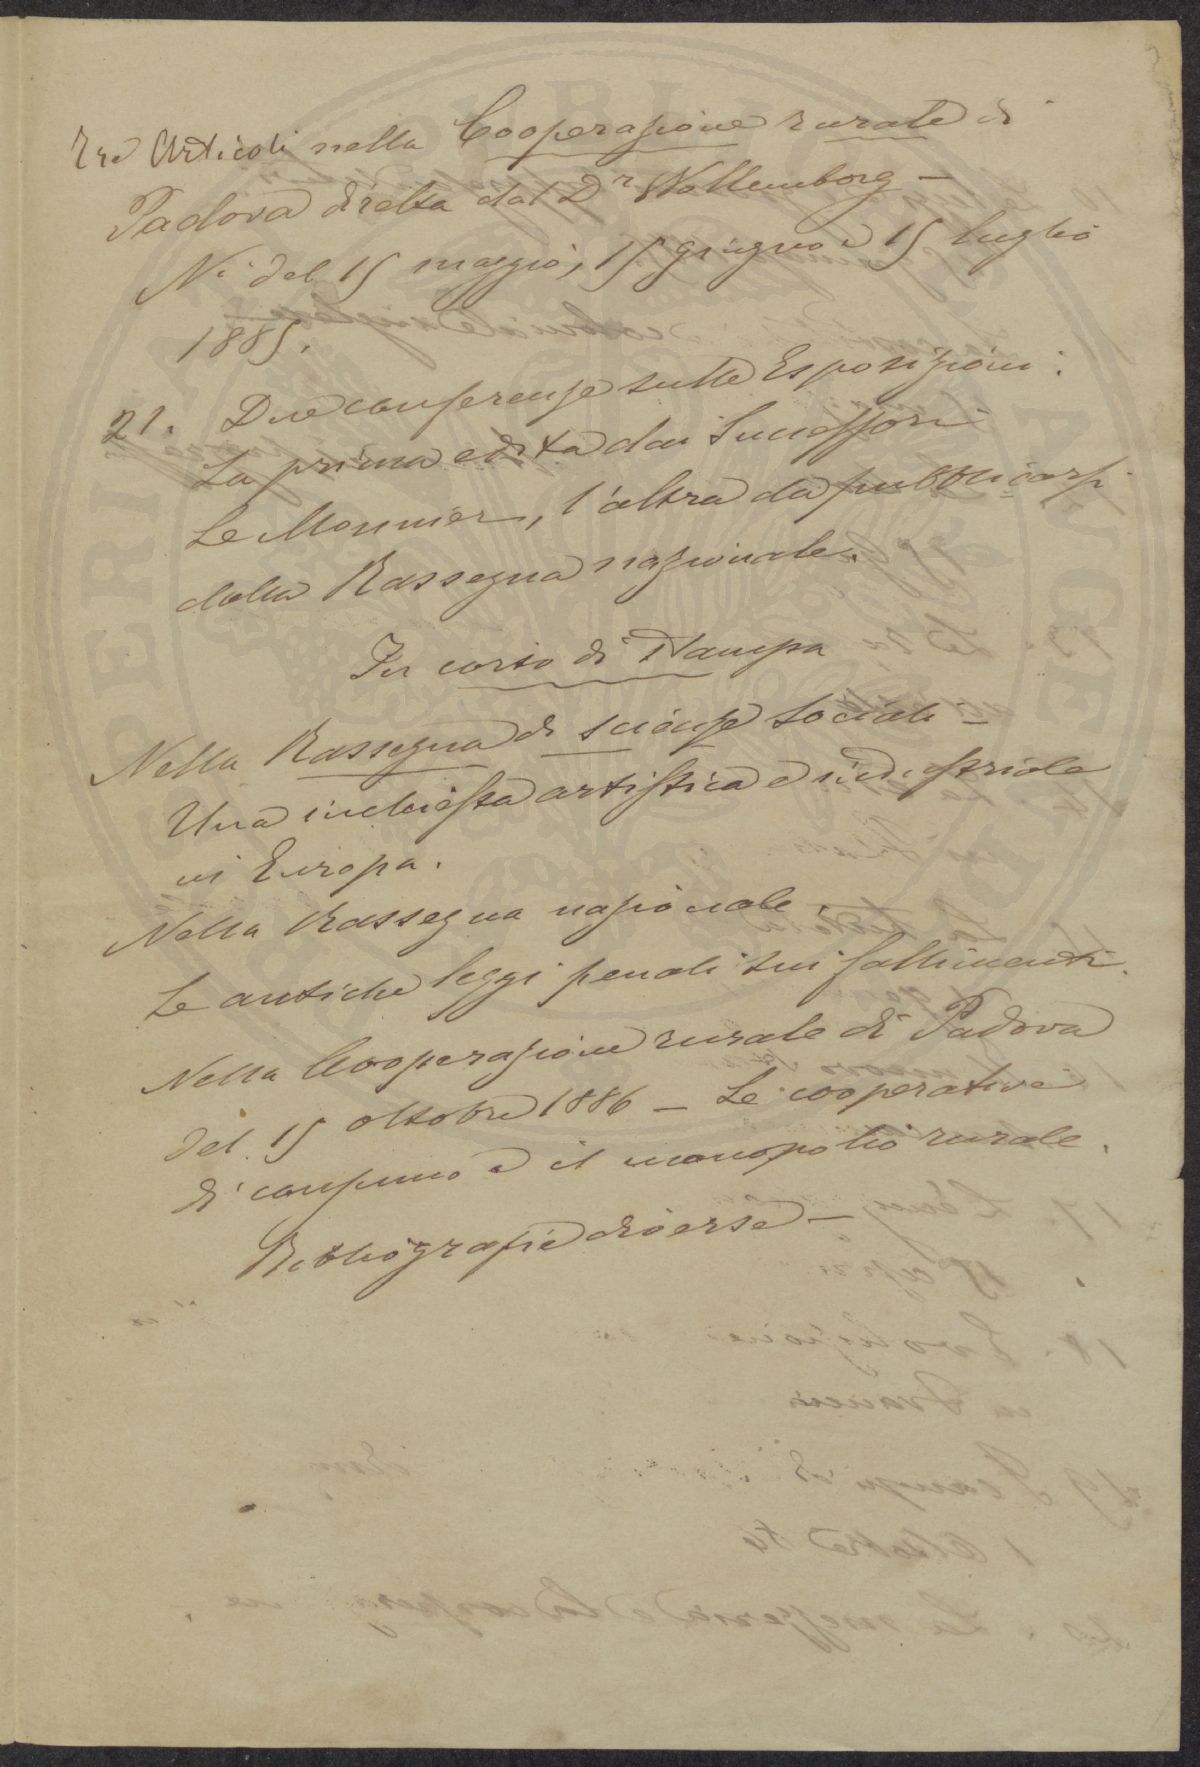 Tre Articoli nella Cooperazione rurale di
Padova diretta dal Dr Wollemborg —
Ni del 15 maggio, 15 giugno e 15 luglio
1885.
21. Due conferenze sulle Esposizioni:
La prima edita dai Successori
Le Monnier, l'altra da pubblicarsi
dalla Rassegna nazionale.
In corso di stampa
Nella Rassegna di scienze sociali —
Una inchiesta artistica e industriale
in Europa.
Nella Rassegna nazionale.
Le antiche leggi penali sui fallimenti.
Nella Cooperazione rurale di Padova
del 15 ottobre 1886 — Le cooperative
di consumo e il monopolio rurale.
Bibliografie diverse —